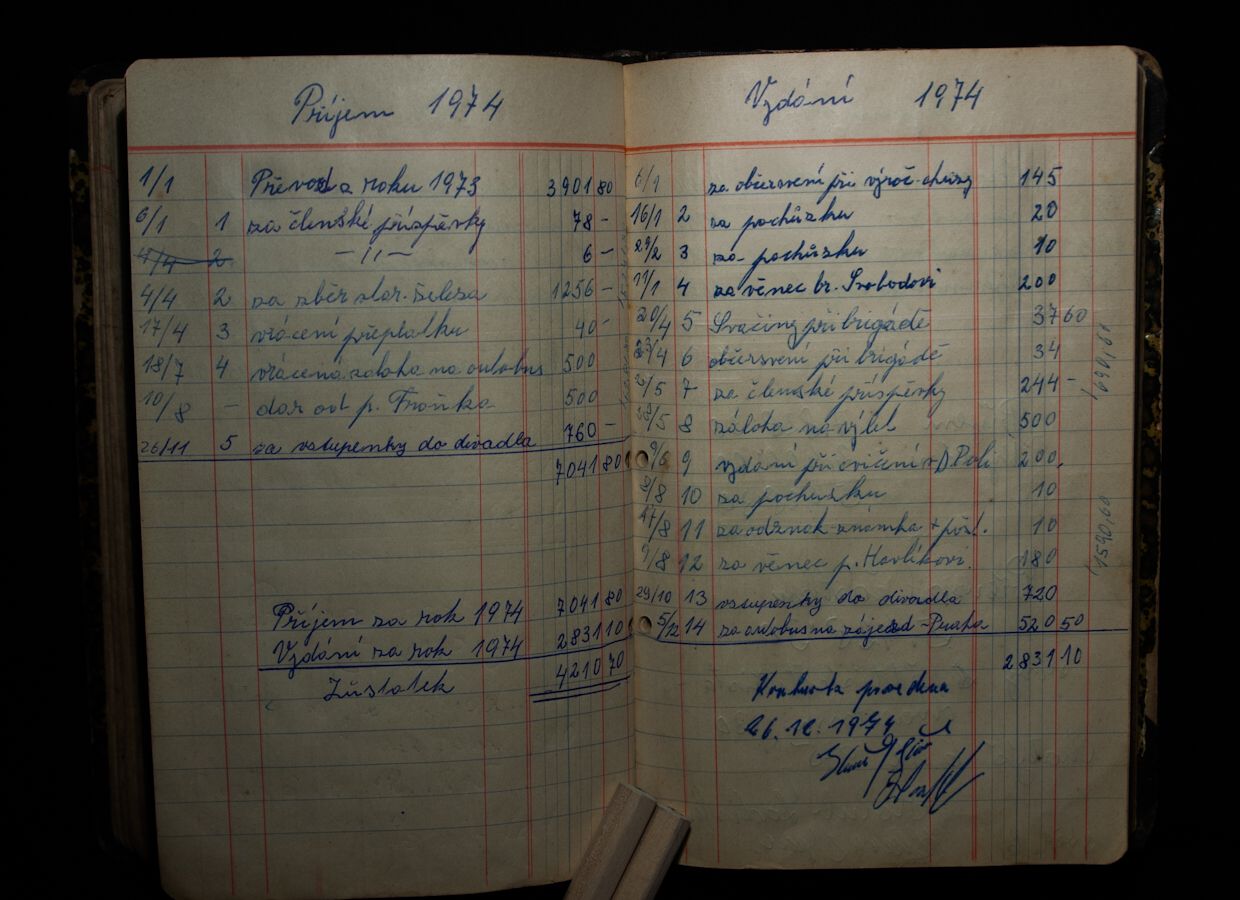 Příjem 1974
1/1 Převod z roku 1973 3901 80
6/1 1 za členské příspěvky 78 –
4/4 2 –„– 6 –
4/4 2 za sběr star. železa 1256 –
17/4 3 vrácení přeplatku 40 –
18/7 4 vrácená záloha na autobus 500
10/8 – dar od p. Froňka 500
26/11 5 za vstupenky do divadla 760 –
7041 80
Příjem za rok 1974 7041 80
Vydání za rok 1974 2831 10
Zůstatek 4210 70
Vydání 1974
6/1 za občersvení při výroč. chůzy 145
16/1 2 za pochůzku 20
29/2 3 za pochůzku 10
4 za věnec br. Svobodovi 200
20/4 5 Svačiny při brigádě 37 60
6 občersvení při brigádě 34
7 za členské příspěvky 244 –
8 záloha na výlet 500
9/6 9 vydání při cvičení v D. Poli 200
10 za pochusku 10
17/8 11 za odznak známka + pošt. 10
9/8 12 za věnec p. Havlíkovi 180
29/10 13 vstupenky do divadla 720
5/12 14 za autobus na zájezd – Praha 520 50
2831 10
1690,60
1590,60
26. 12. 1974